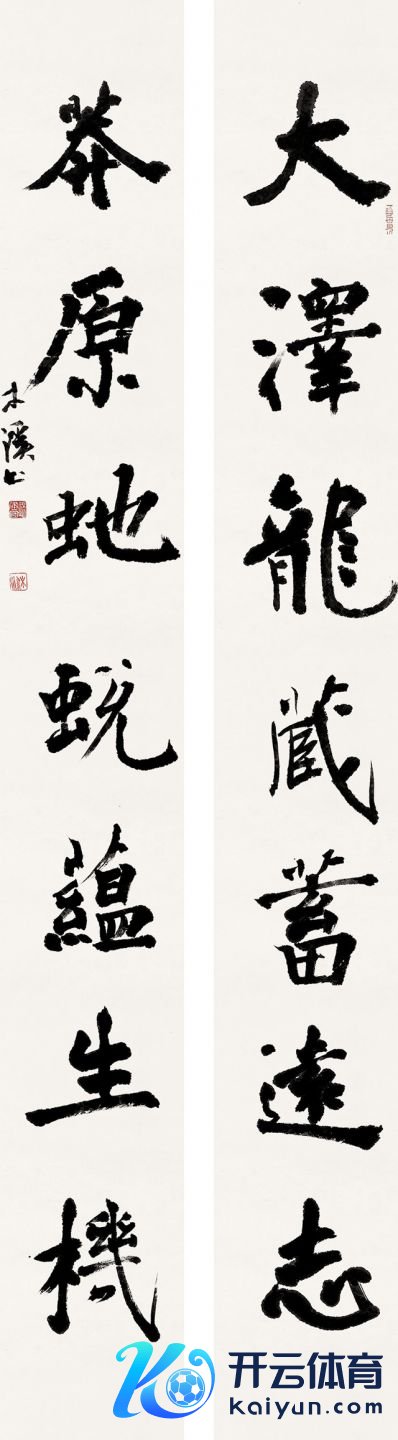 大澤龍藏蓄遠志
莽原虵蛻蘊生機
木溪书
开云体育
kaiyun.com